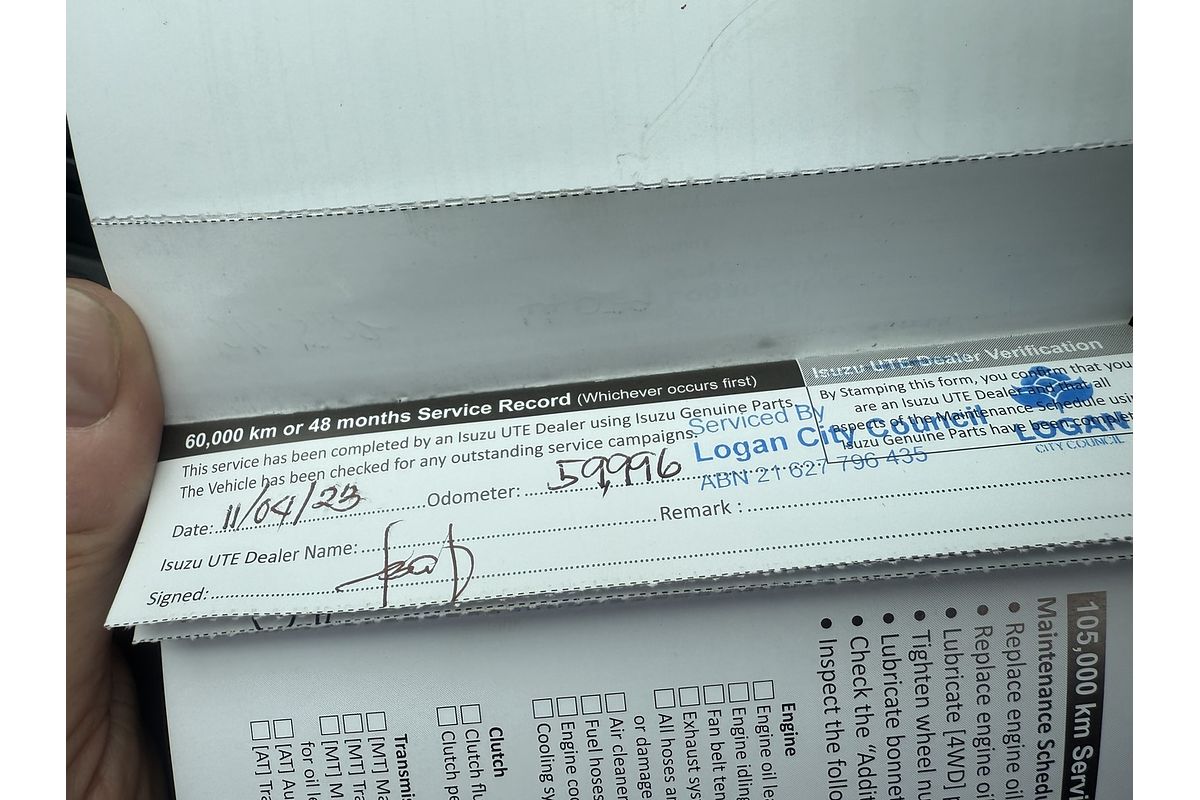 60,000 km or 48 months Service Record (Whichever occurs first)
This service has been completed by an Isuzu UTE Dealer using Isuzu Genuine Parts.
The Vehicle has been checked for any outstanding service campaigns.
Date: 11/04/23 Odometer: 59,996
Isuzu UTE Dealer Name: Remark :
Signed:
Isuzu UTE Dealer Verification
By Stamping this form, you confirm that you
are an Isuzu UTE Dealer and that all
aspects of the Maintenance Schedule usi
Isuzu Genuine Parts have been
Serviced By
Logan City Council
ABN 21 627 796 435
LOGAN
CITY COUNCIL
105,000 km Servi
Maintenance Sched
• Replace engine oil
• Replace engine oi
• Lubricate [4WD]
• Tighten wheel nu
• Lubricate bonnet
• Check the "Addit
• Inspect the follo
Engine
Engine oil le
Engine idlin
Fan belt ten
Exhaust sys
All hoses a
or damage
Air cleaner
Fuel hoses
Engine coo
Cooling sy
Clutch
Clutch flu
Clutch pe
Transmi
[MT] Ma
[MT] Tra
[MT] M
for oil le
[AT] Au
[AT] Tra